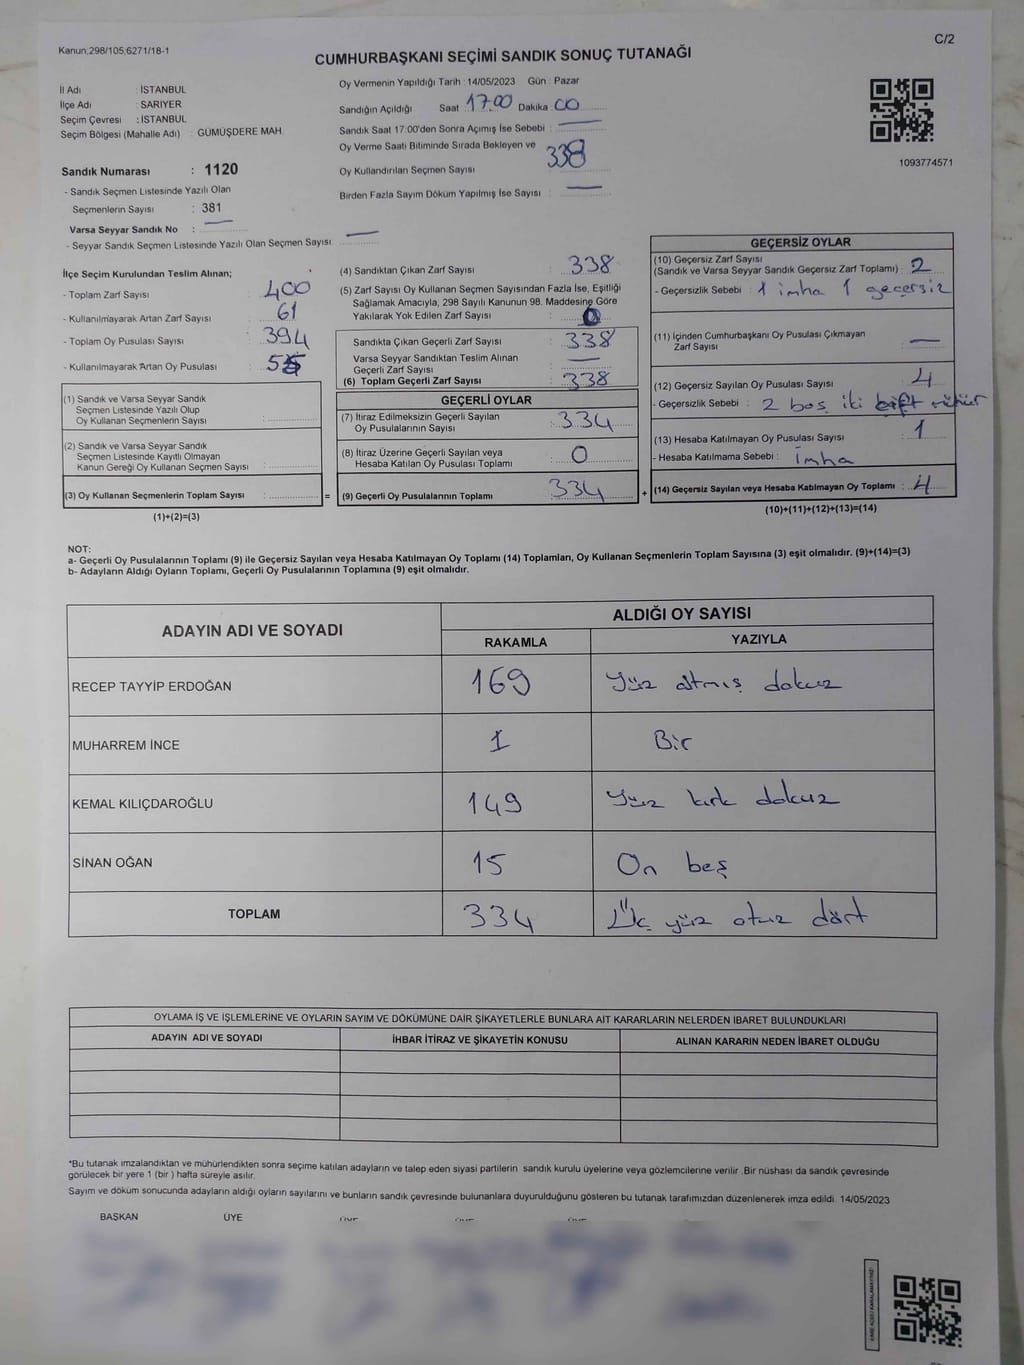 Kanun;298/105;6271/18-1
C/2
CUMHURBAŞKANI SEÇİMİ SANDIK SONUÇ TUTANAĞI
İl Adı : İSTANBUL
İlçe Adı : SARIYER
Seçim Çevresi : İSTANBUL
Seçim Bölgesi (Mahalle Adı) : GÜMÜŞDERE MAH.
Sandık Numarası : 1120
- Sandık Seçmen Listesinde Yazılı Olan
Seçmenlerin Sayısı : 381
Varsa Seyyar Sandık No : —
- Seyyar Sandık Seçmen Listesinde Yazılı Olan Seçmen Sayısı : —
Oy Vermenin Yapıldığı Tarih : 14/05/2023 Gün : Pazar
Sandığın Açıldığı Saat : 17.00 Dakika : 00
Sandık Saat 17:00'den Sonra Açımış İse Sebebi : —
Oy Verme Saati Bitiminde Sırada Bekleyen ve
Oy Kullandırılan Seçmen Sayısı : 338
Birden Fazla Sayım Döküm Yapılmış İse Sayısı : —
1093774571
İlçe Seçim Kurulundan Teslim Alınan;
- Toplam Zarf Sayısı : 400
- Kullanılmayarak Artan Zarf Sayısı : 61
- Toplam Oy Pusulası Sayısı : 394
- Kullanılmayarak Artan Oy Pusulası :
(1) Sandık ve Varsa Seyyar Sandık
Seçmen Listesinde Yazılı Olup
Oy Kullanan Seçmenlerin Sayısı :
(2) Sandık ve Varsa Seyyar Sandık
Seçmen Listesinde Kayıtlı Olmayan
Kanun Gereği Oy Kullanan Seçmen Sayısı :
(3) Oy Kullanan Seçmenlerin Toplam Sayısı : =
(1)+(2)=(3)
(4) Sandıktan Çıkan Zarf Sayısı : 338
(5) Zarf Sayısı Oy Kullanan Seçmen Sayısından Fazla İse, Eşitliği
Sağlamak Amacıyla, 298 Sayılı Kanunun 98. Maddesine Göre
Yakılarak Yok Edilen Zarf Sayısı : 0
Sandıkta Çıkan Geçerli Zarf Sayısı : 338
Varsa Seyyar Sandıktan Teslim Alınan —
Geçerli Zarf Sayısı :
(6) Toplam Geçerli Zarf Sayısı : 338
GEÇERLİ OYLAR
(7) İtiraz Edilmeksizin Geçerli Sayılan
Oy Pusulalarının Sayısı : 334
(8) İtiraz Üzerine Geçerli Sayılan veya
Hesaba Katılan Oy Pusulası Toplamı : 0
(9) Geçerli Oy Pusulalarının Toplamı : 334 +
GEÇERSİZ OYLAR
(10) Geçersiz Zarf Sayısı
(Sandık ve Varsa Seyyar Sandık Geçersiz Zarf Toplamı) : 2
- Geçersizlik Sebebi : 1 imha 1 geçersiz
(11) İçinden Cumhurbaşkanı Oy Pusulası Çıkmayan
Zarf Sayısı : —
(12) Geçersiz Sayılan Oy Pusulası Sayısı : 4
- Geçersizlik Sebebi : 2 boş iki çift mühür
(13) Hesaba Katılmayan Oy Pusulası Sayısı : 1
- Hesaba Katılmama Sebebi : imha
(14) Geçersiz Sayılan veya Hesaba Katılmayan Oy Toplamı : 4
(10)+(11)+(12)+(13)=(14)
NOT:
a- Geçerli Oy Pusulalarının Toplamı (9) ile Geçersiz Sayılan veya Hesaba Katılmayan Oy Toplamı (14) Toplamları, Oy Kullanan Seçmenlerin Toplam Sayısına (3) eşit olmalıdır. (9)+(14)=(3)
b- Adayların Aldığı Oyların Toplamı, Geçerli Oy Pusulalarının Toplamına (9) eşit olmalıdır.
ADAYIN ADI VE SOYADI ALDIĞI OY SAYISI
RAKAMLA YAZIYLA
RECEP TAYYİP ERDOĞAN 169 Yüz altmış dokuz
MUHARREM İNCE 1 Bir
KEMAL KILIÇDAROĞLU 149 Yüz kırk dokuz
SİNAN OĞAN 15 On beş
TOPLAM 334 Üç yüz otuz dört
OYLAMA İŞ VE İŞLEMLERİNE VE OYLARIN SAYIM VE DÖKÜMÜNE DAİR ŞİKAYETLERLE BUNLARA AİT KARARLARIN NELERDEN İBARET BULUNDUKLARI
ADAYIN ADI VE SOYADI İHBAR İTİRAZ VE ŞİKAYETİN KONUSU ALINAN KARARIN NEDEN İBARET OLDUĞU
*Bu tutanak imzalandıktan ve mühürlendikten sonra seçime katılan adayların ve talep eden siyasi partilerin sandık kurulu üyelerine veya gözlemcilerine verilir .Bir nüshası da sandık çevresinde
görülecek bir yere 1 (bir ) hafta süreyle asılır.
Sayım ve döküm sonucunda adayların aldığı oyların sayılarını ve bunların sandık çevresinde bulunanlara duyurulduğunu gösteren bu tutanak tarafımızdan düzenlenerek imza edildi. 14/05/2023
BAŞKAN ÜYE ÜYE ÜYE ÜYE